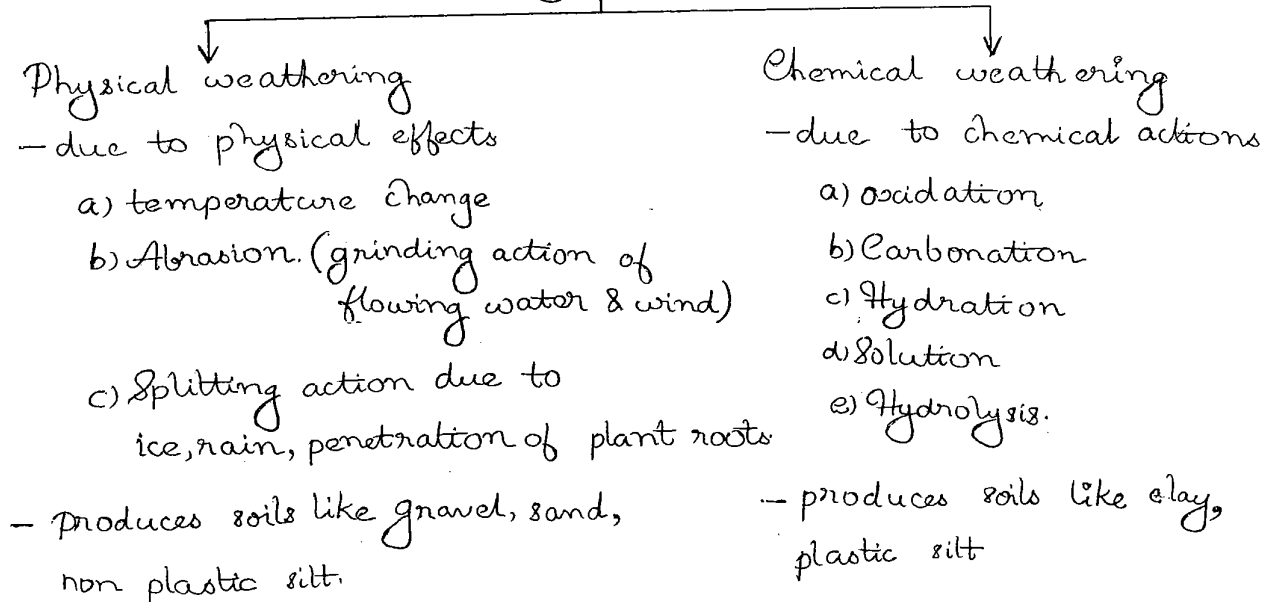 Physical weathering
- due to physical effects
a) temperature change
b) Abrasion. (grinding action of
flowing water & wind)
c) Splitting action due to
ice, rain, penetration of plant roots
- produces soils like gravel, sand,
non plastic silt.
Chemical weathering
- due to chemical actions
a) oxidation
b) Carbonation
c) Hydration
d) Solution
e) Hydrolysis.
- produces soils like clay,
plastic silt